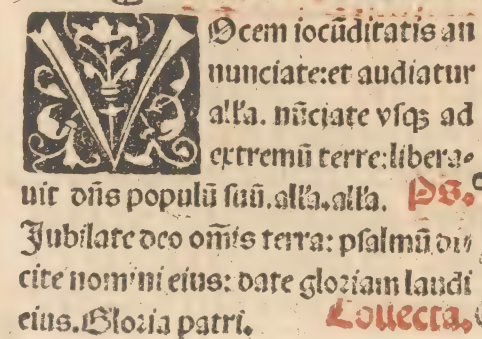 VOcem iocūditatis an
nunciate:et audiatur
all'a. nūciate vsqꝫ ad
extremū terre:libera⸗
uit dn̄s populū suū.all'a.all'a. Ps.
Jubilate deo om̄is terra: psalmū di⸗
cite nomini eius: date gloriam laudi
eius.Gloria patri. Collecta.